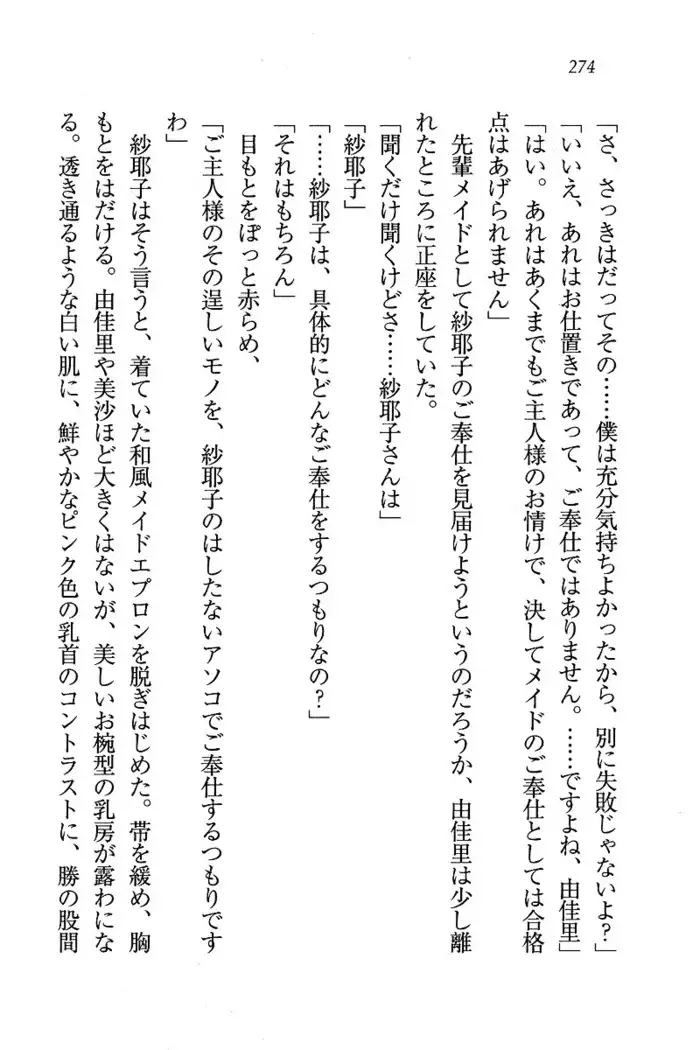 274
「さ、さっきはだってその……僕は充分気持ちよかったから、別に失敗じゃないよ？」
「いいえ、あれはお仕置きであって、ご奉仕ではありません。……ですよね、由佳里」
「はい。あれはあくまでもご主人様のお情けで、決してメイドのご奉仕としては合格
点はあげられません」
先輩メイドとして紗耶子のご奉仕を見届けようというのだろうか、由佳里は少し離
れたところに正座をしていた。
「聞くだけ聞くけどさ……紗耶子さんは」
「紗耶子」
「……紗耶子は、具体的にどんなご奉仕をするつもりなの？」
「それはもちろん」
目もとをぽっと赤らめ、
「ご主人様のその逞しいモノを、紗耶子のはしたないアソコでご奉仕するつもりです
わ」
紗耶子はそう言うと、着ていた和風メイドエプロンを脱ぎはじめた。帯を緩め、胸
もとをはだける。由佳里や美沙ほど大きくはないが、美しいお椀型の乳房が露わにな
る。透き通るような白い肌に、鮮やかなピンク色の乳首のコントラストに、勝の股間